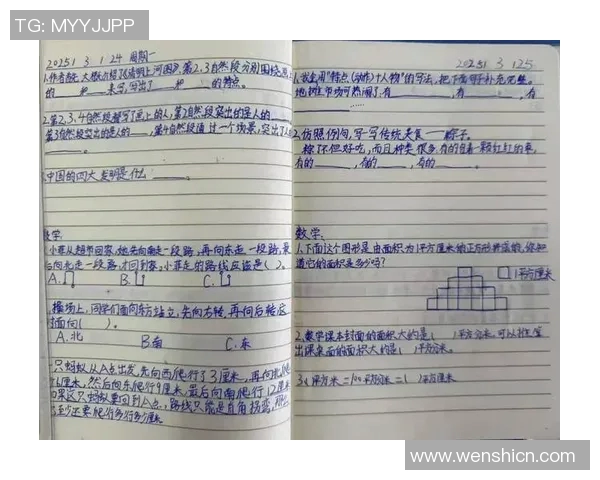 TG: MYYJJPP
2025 1 3 1 24 周期一
1.作者先大概介绍了《清明上河图》,第2、3自然段分别围绕
的____和____来写,写出了____和____的特点。
2.第2、3、4自然段描写了画上的人,第2自然段突出的是人的____,
第3自然段突出的是人的____,第4自然段通过一个场景,突出了人
中国的四大发明是什么____。
数学
1.小菲从超市回家,她先向南走一段路,再向东走一段路,最
后向北走一段路,才回到家,小菲走的路线应该是( )。
A. B. C.
操场上,同学们面向东方站立,先向右转,再向后转,这
时面向( )。
A.北 B.南 C.东
一只蚂蚁从A点出发,先向西爬行了3厘米,再向北爬行
6厘米,然后向东爬行9厘米,最后向南爬行12厘米
如果这只蚂蚁要回到A点,路线只能是直角拐弯,那么
至少还要爬行多少厘米
2025 1 3 1 25
1.我会用“特点(动作)+人物”的写法,把下面句子补充完整。
地摊上市场可热闹了,有____,有____,有
____……
2.仿照例句,写一写传统美食——粽子
粽子不但好吃,而且种类很多,有的包着一颗红红的枣,
有的____,有的____,有的____。
数学:
1.下面这个图形是由面积为1平方厘米的正方形拼成的,你知
道它的面积是多少吗?
1平方厘米
2.数学课本封面的面积大约是( )平方分米,可以推算
出课桌面的面积大约是( )平方分米。
3.( )平方米=100平方分米=( )平方厘米
www.wenshicn.com